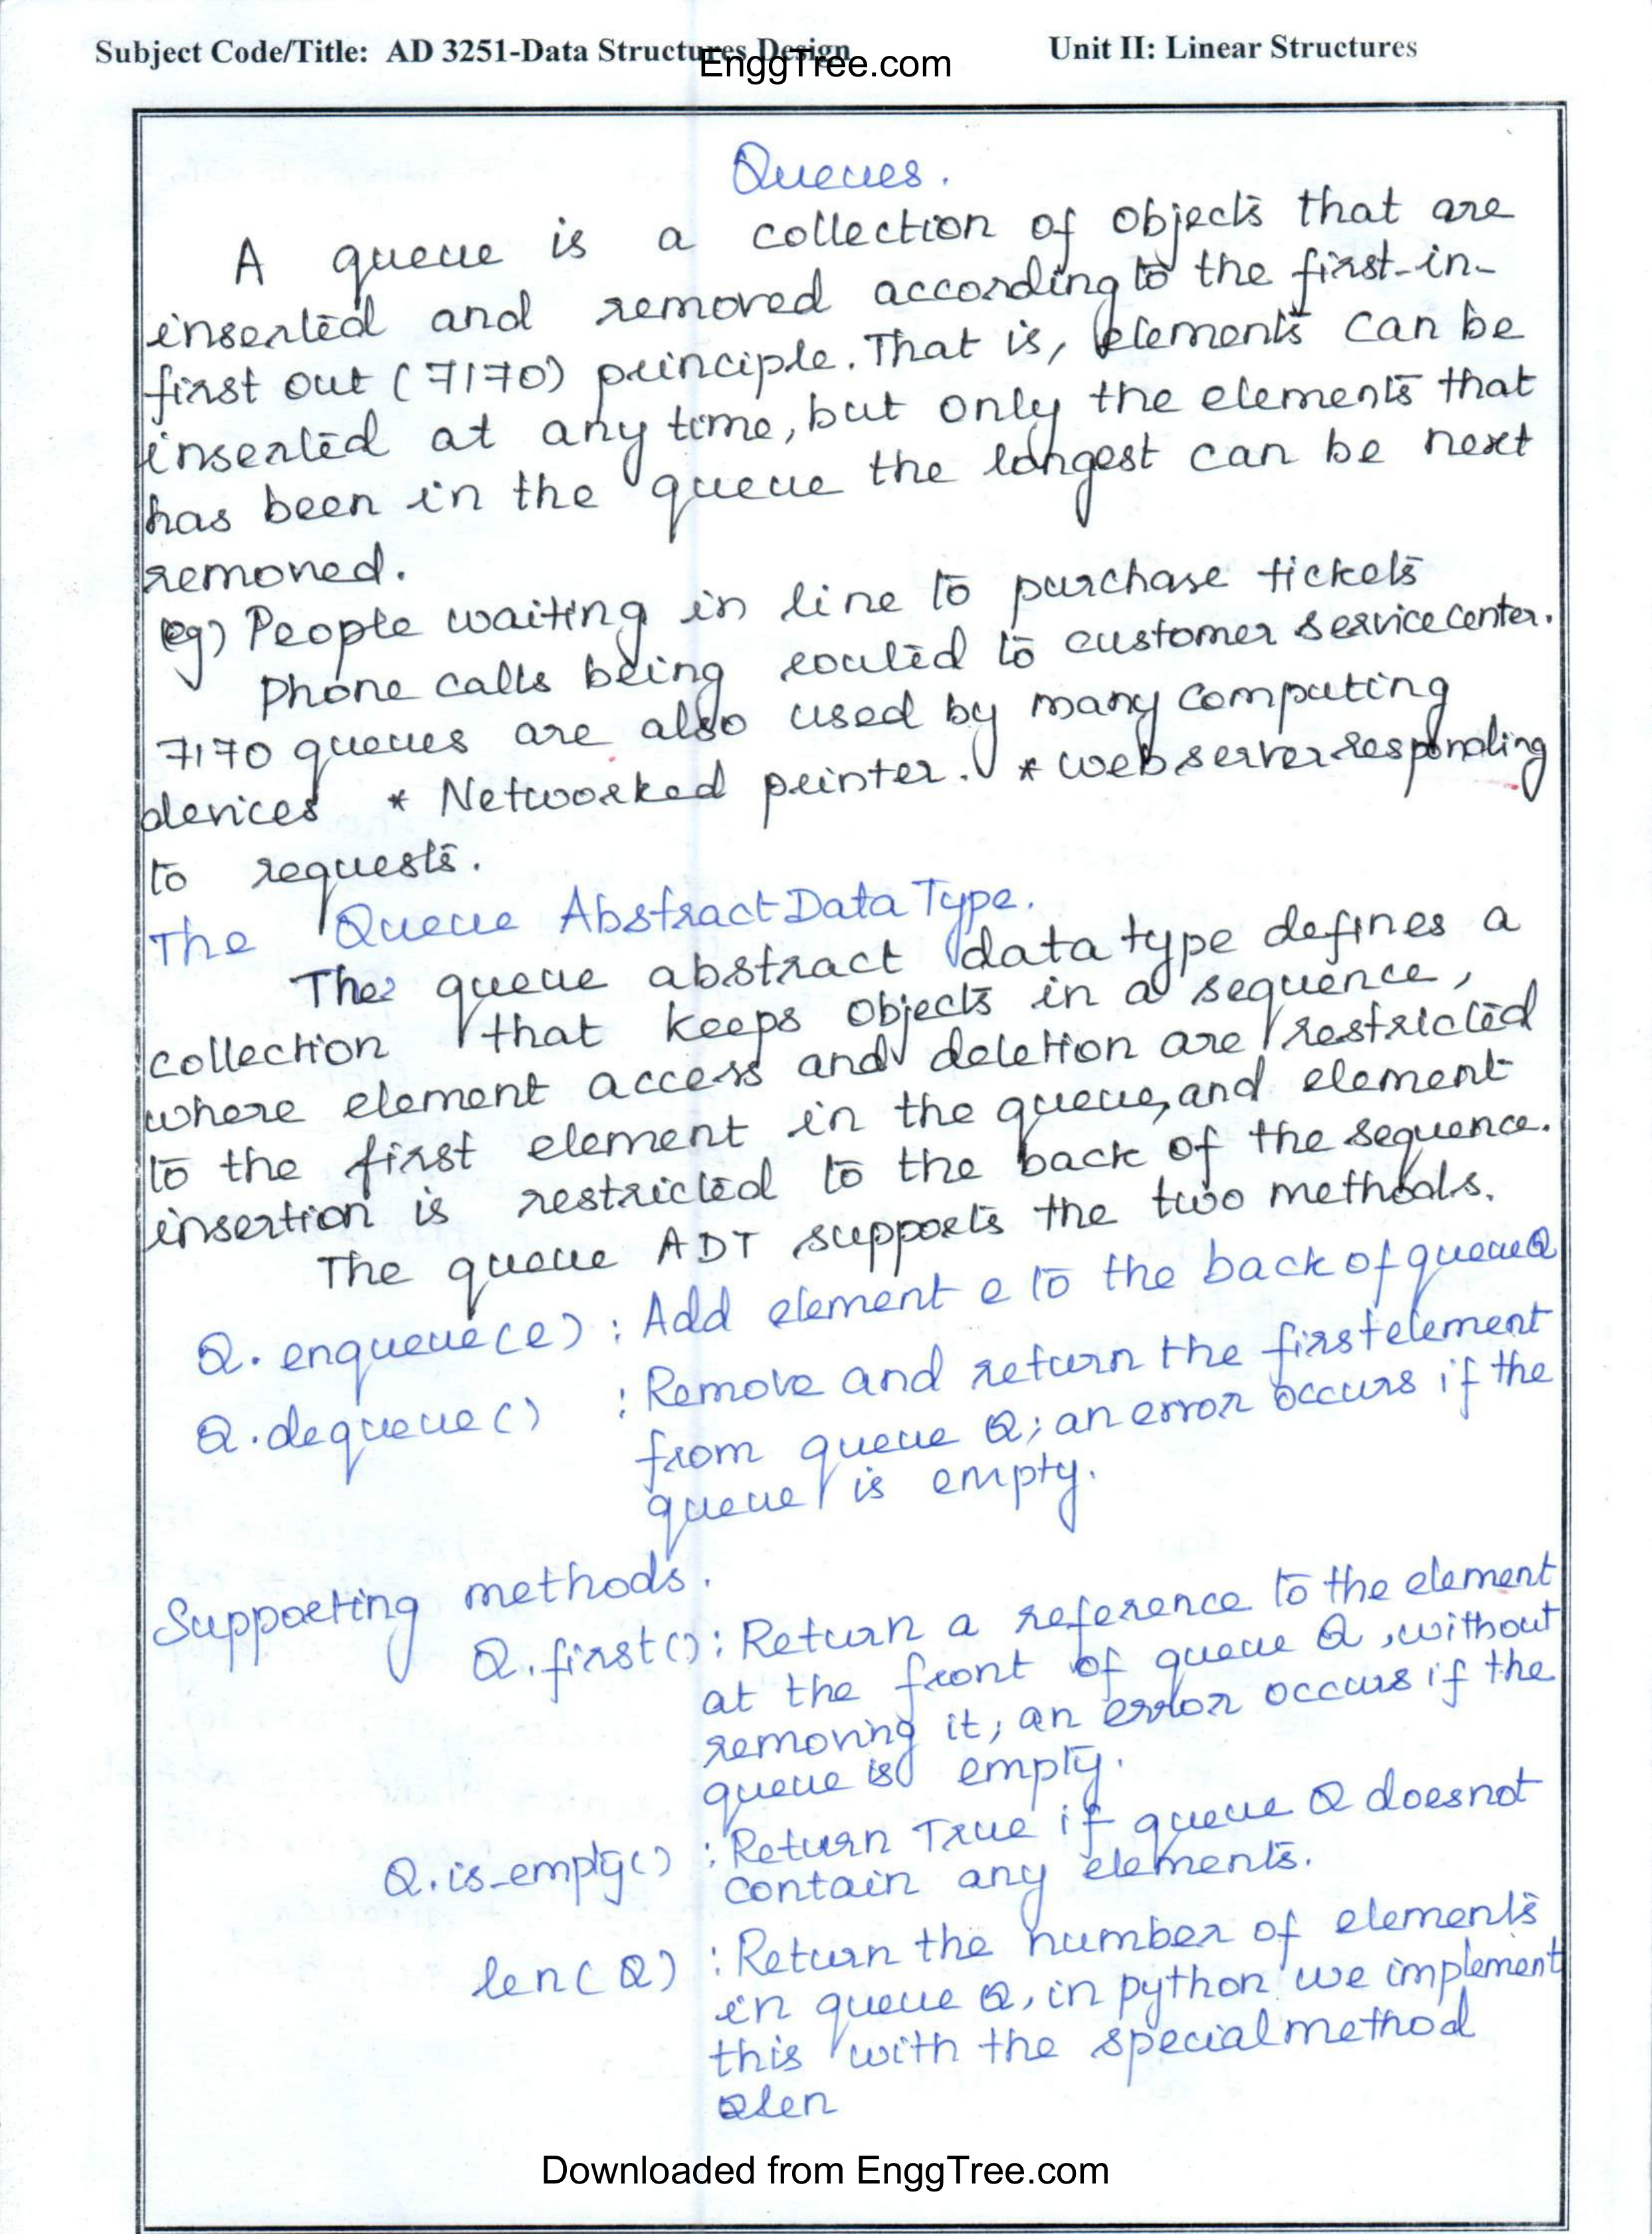 Subject Code/Title: AD 3251-Data Structures Design
EnggTree.com
Unit II: Linear Structures
Queues.
A queue is a collection of objects that are
inserted and removed according to the first-in-
first out (FIFO) principle. That is, elements can be
inserted at any time, but only the elements that
has been in the queue the longest can be next
removed.
eg) People waiting in line to purchase tickets
Phone calls being routed to customer service center.
FIFO queues are also used by many computing
devices * Networked printer. * web server responding
to requests.
The Queue Abstract Data Type.
The queue abstract data type defines a
collection that keeps objects in a sequence,
where element access and deletion are restricted
to the first element in the queue, and element
insertion is restricted to the back of the sequence.
The queue ADT supports the two methods.
Q.enqueue(e) : Add element e to the back of queue Q
Q.dequeue() : Remove and return the first element
from queue Q; an error occurs if the
queue is empty.
Supporting methods.
Q.first() : Return a reference to the element
at the front of queue Q, without
removing it; an error occurs if the
queue is empty.
Q.is_empty() : Return True if queue Q does not
contain any elements.
len(Q) : Return the number of elements
in queue Q, in python we implement
this with the special method
len
Downloaded from EnggTree.com